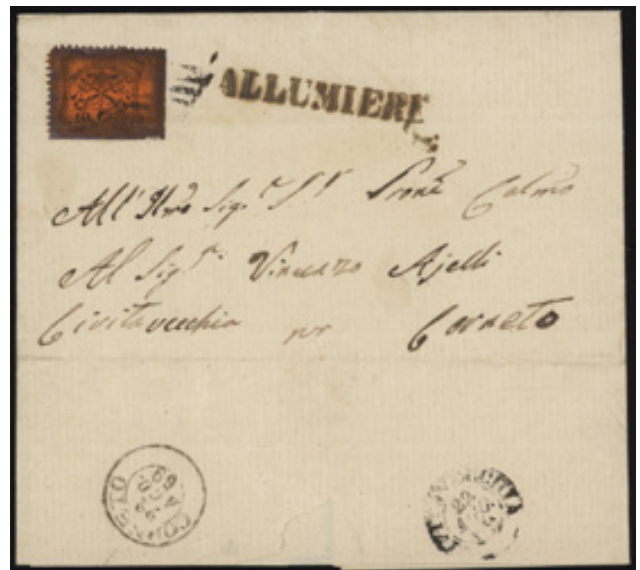 10 CENT
ALLUMIERE
All'Ill.mo Sig.r S.r Pron.e Colmo
Al Sig.r Vincenzo Ajelli
Civitavecchia per Corneto
CORNETO
AGO
69
CIVITAVECCHIA